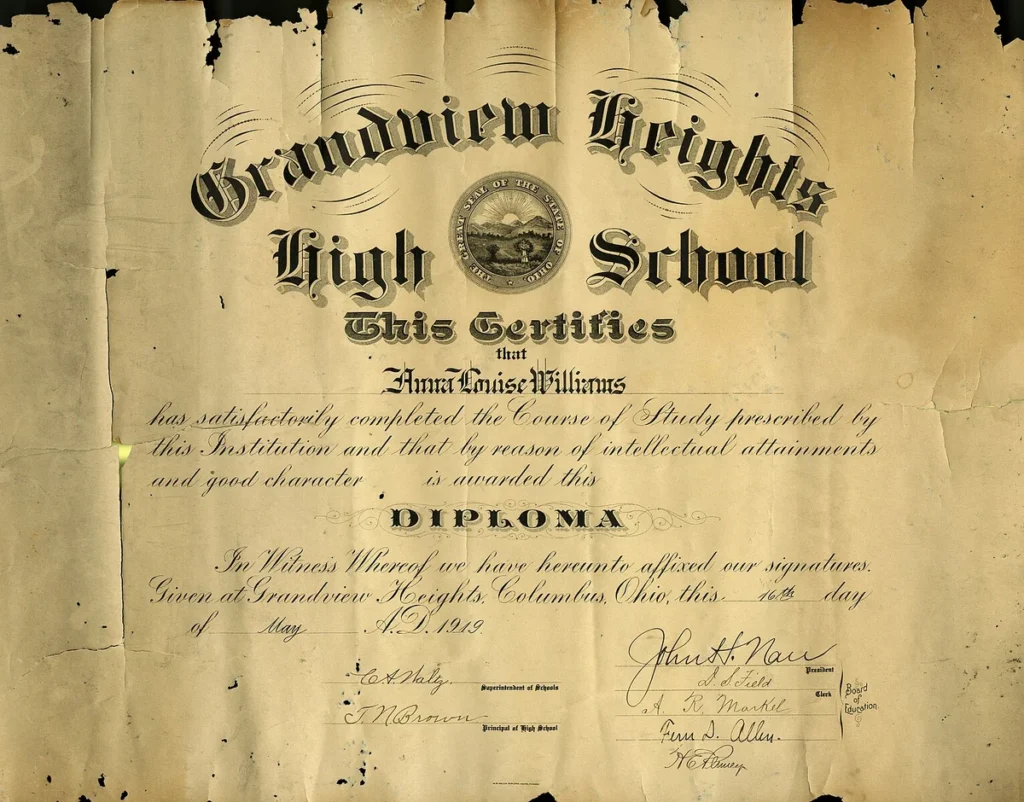 Grandview Heights
High School
THE GREAT SEAL OF THE STATE OF OHIO
This Certifies
that
Anna Louise Williams
has satisfactorily completed the Course of Study prescribed by
this Institution and that by reason of intellectual attainments
and good character is awarded this
DIPLOMA
In Witness Whereof we have hereunto affixed our signatures.
Given at Grandview Heights, Columbus, Ohio, this 16th day
of May A.D. 1919.
E A Waltz.
Superintendent of Schools
T. N Brown
Principal of High School
John H.
President
D. S. Field
Clerk
A. R. Markel
Fern D. Allen.
H E
Board
of
Education